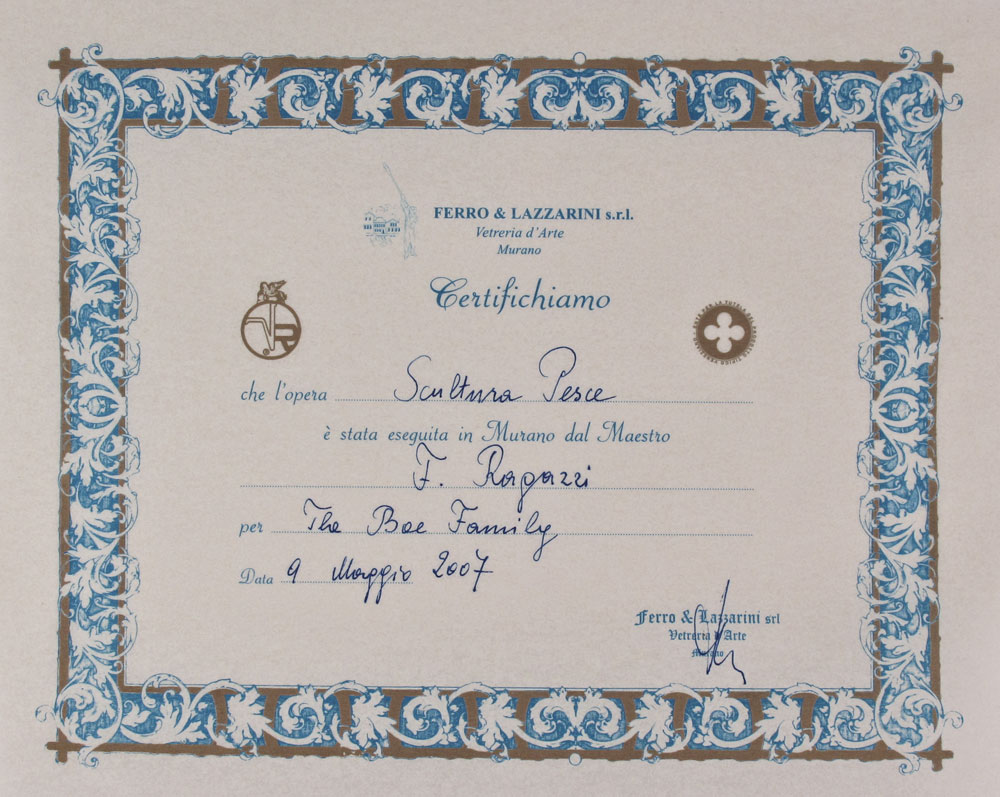 FERRO & LAZZARINI s.r.l.
Vetreria d'Arte
Murano
Certifichiamo
VR
che l'opera Scultura Pesce
è stata eseguita in Murano dal Maestro
F. Ragazzi
per The Bae Family
Data 9 Maggio 2007
Ferro & Lazzarini srl
Vetreria d'Arte
Murano